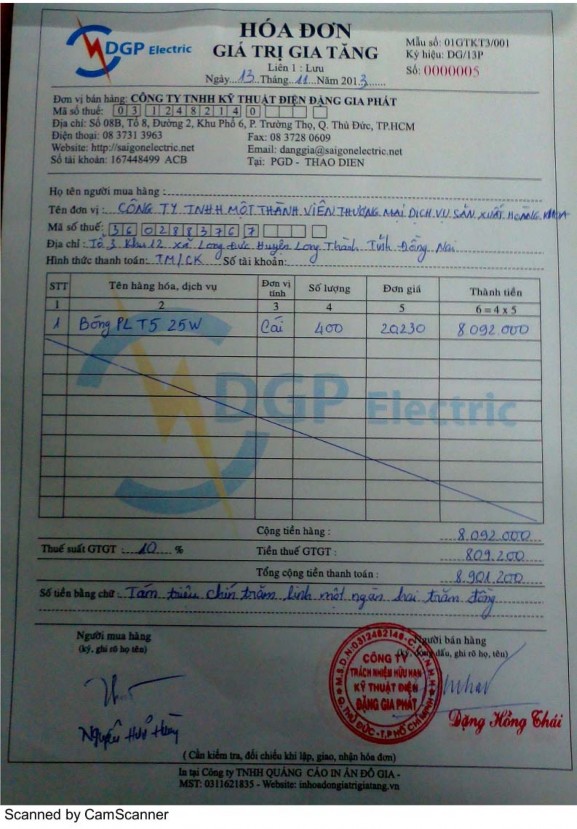 DGP Electric
HÓA ĐƠN
GIÁ TRỊ GIA TĂNG
Liên 1 : Lưu
Ngày 13 Tháng 11 Năm 2013
Mẫu số: 01GTKT3/001
Ký hiệu: DG/13P
Số: 0000005
Đơn vị bán hàng: CÔNG TY TNHH KỸ THUẬT ĐIỆN ĐẶNG GIA PHÁT
Mã số thuế: 0312482140
Địa chỉ: Số 08B, Tổ 8, Đường 2, Khu Phố 6, P. Trường Thọ, Q. Thủ Đức, TP.HCM
Điện thoại: 08 3731 3963 Fax: 08 3728 0609
Website: http://saigonelectric.net Email: danggia@saigonelectric.net
Số tài khoản: 167448499 ACB Tại: PGD - THAO DIEN
Họ tên người mua hàng :
Tên đơn vị : CÔNG TY TNHH MỘT THÀNH VIÊN THƯƠNG MẠI DỊCH VỤ SẢN XUẤT HOÀNG KHOA
Mã số thuế: 3602883767
Địa chỉ : Tổ 3 Khu 12 xã Long Đức Huyện Long Thành Tỉnh Đồng Nai
Hình thức thanh toán: TM/CK Số tài khoản:
STT Tên hàng hóa, dịch vụ Đơn vị tính Số lượng Đơn giá Thành tiền
1 2 3 4 5 6 = 4 x 5
1 Bóng PL T5 25W Cái 400 20,230 8.092.000
DGP Electric
Cộng tiền hàng : 8.092.000
Thuế suất GTGT : 10 % Tiền thuế GTGT : 809.200
Tổng cộng tiền thanh toán : 8.901.200
Số tiền bằng chữ : Tám triệu chín trăm linh một ngàn hai trăm đồng
Người mua hàng
(ký, ghi rõ họ, tên)
Người bán hàng
đóng dấu, ghi rõ họ, tên)
CÔNG TY
TRÁCH NHIỆM HỮU HẠN
KỸ THUẬT ĐIỆN
ĐẶNG GIA PHÁT
Q. THỦ ĐỨC - T.P HỒ CHÍ MINH
Đặng Hồng Thái
( Cần kiểm tra, đối chiếu khi lập, giao, nhận hóa đơn)
In tại Công ty TNHH QUẢNG CÁO IN ẤN ĐỒ GIA -
MST: 0311621835 - Website: inhoadongiatrigiatang.vn
Scanned by CamScanner